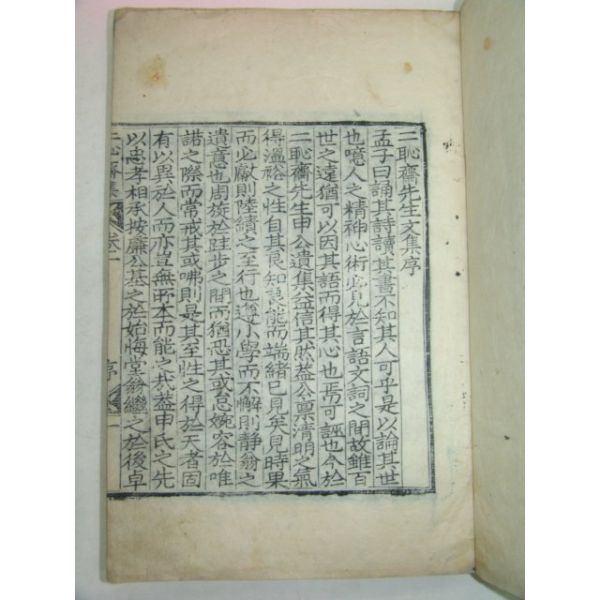 二恥齋先生文集序
孟子曰誦其詩讀其書不知其人可乎是以論其世
也噫人之精神心術必見於言語文詞之間故雖百
世之遠猶可以因其語而得其心也焉可誣也今於
二恥齋先生申公遺集益信其然蓋公禀清明之氣
得溫裕之性自其良知良能而端緖已見矣見時果
而必獻則陸績之至行也遵小學而不懈則靜翁之
遺意也周旋於跬步之間而猶恐其或怠婉容於唯
諾之際而常戒其或咈則是其至性之得於天者固
有以異於人而亦豈無所本而能之哉蓋申氏之先
以忠孝相承按廉公基之於始悔堂翁繼之於後卓
二恥齋集 卷一 序 一